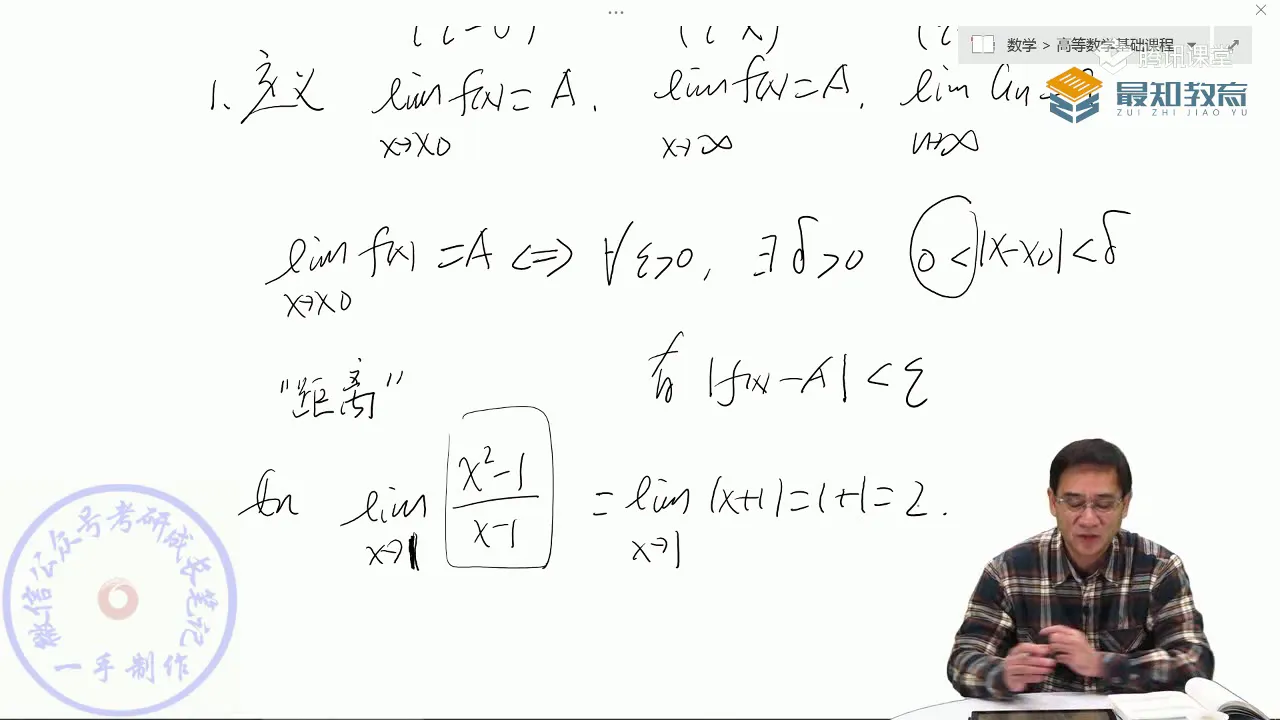 数学 > 高等数学基础课程
腾讯课堂
最知教育
ZUI ZHI JIAO YU
1. 定义 lim f(x) = A, lim f(x) = A, lim
x→x0 x→∞ n→∞
lim f(x) = A <=> ∀ε>0, ∃δ>0 0<|x-x0|<δ
x→x0
"距离" 有 |f(x)-A|<ε
如 lim (x²-1)/(x-1) = lim (x+1)=1+1=2.
x→1 x→1
微信公众号考研成长笔记
一手制作